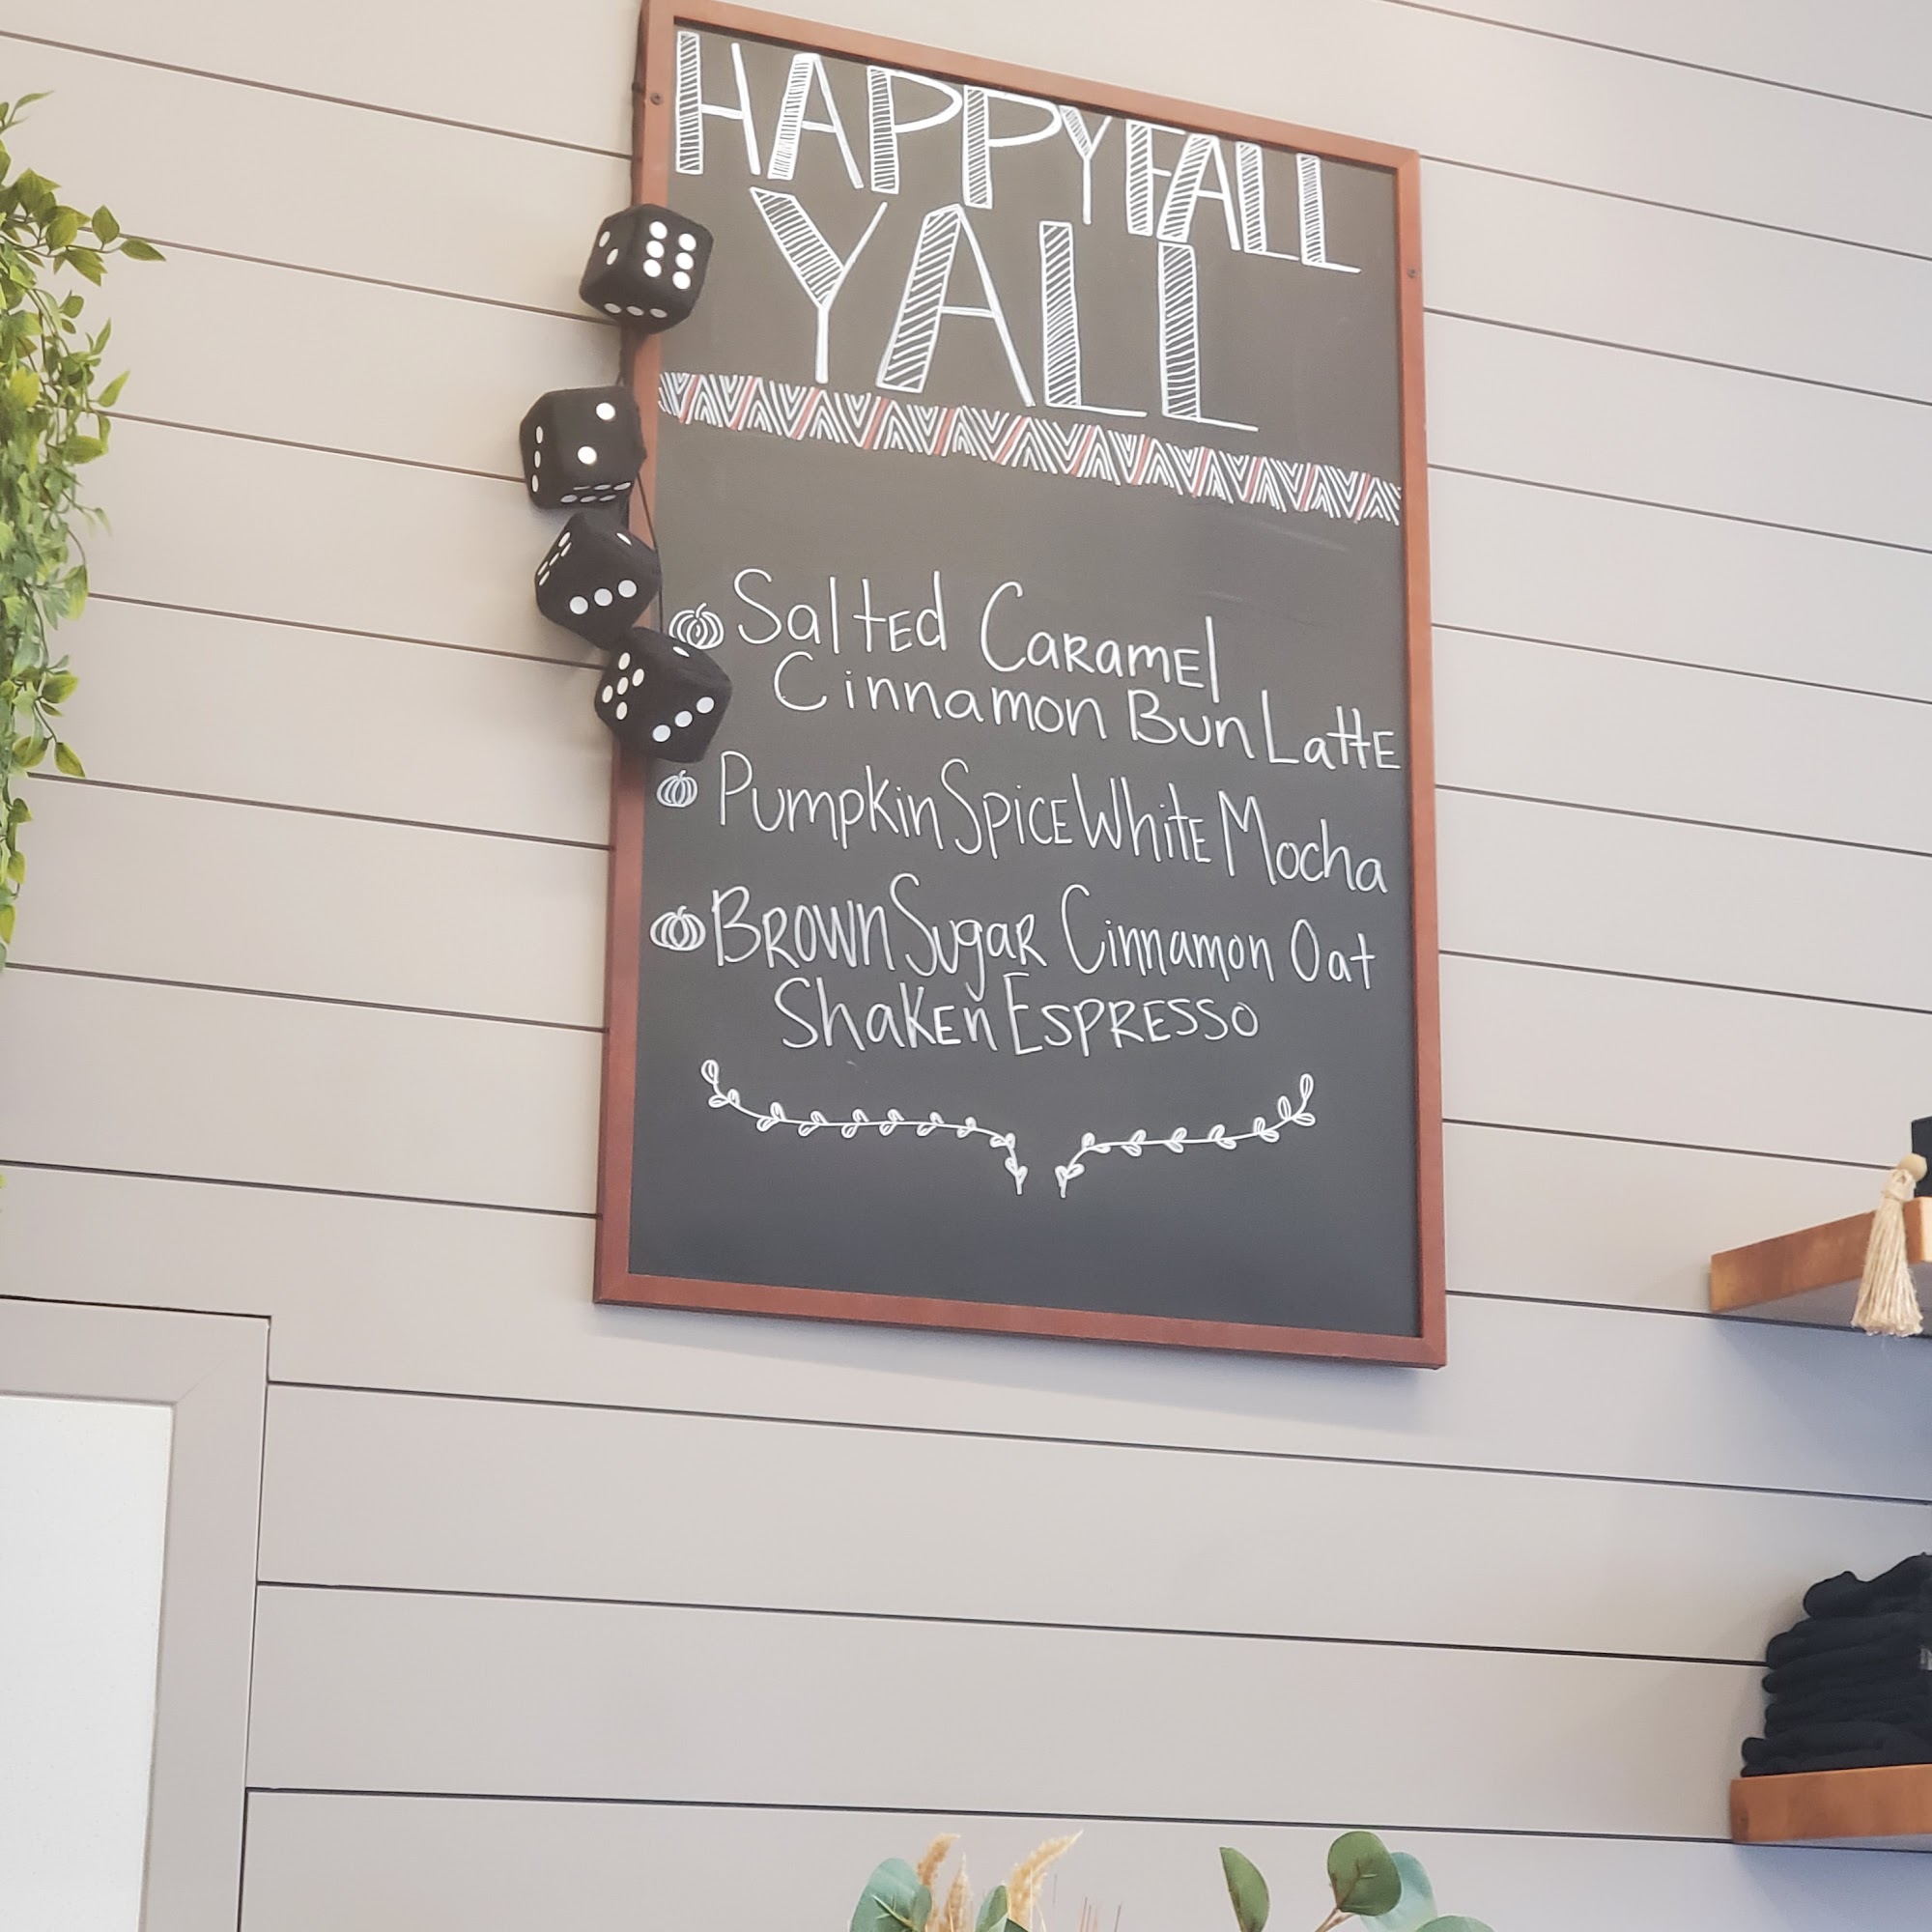 HAPPY FALL
YALL
Salted Caramel
Cinnamon Bun Latte
Pumpkin Spice White Mocha
Brown Sugar Cinnamon Oat
Shaken Espresso